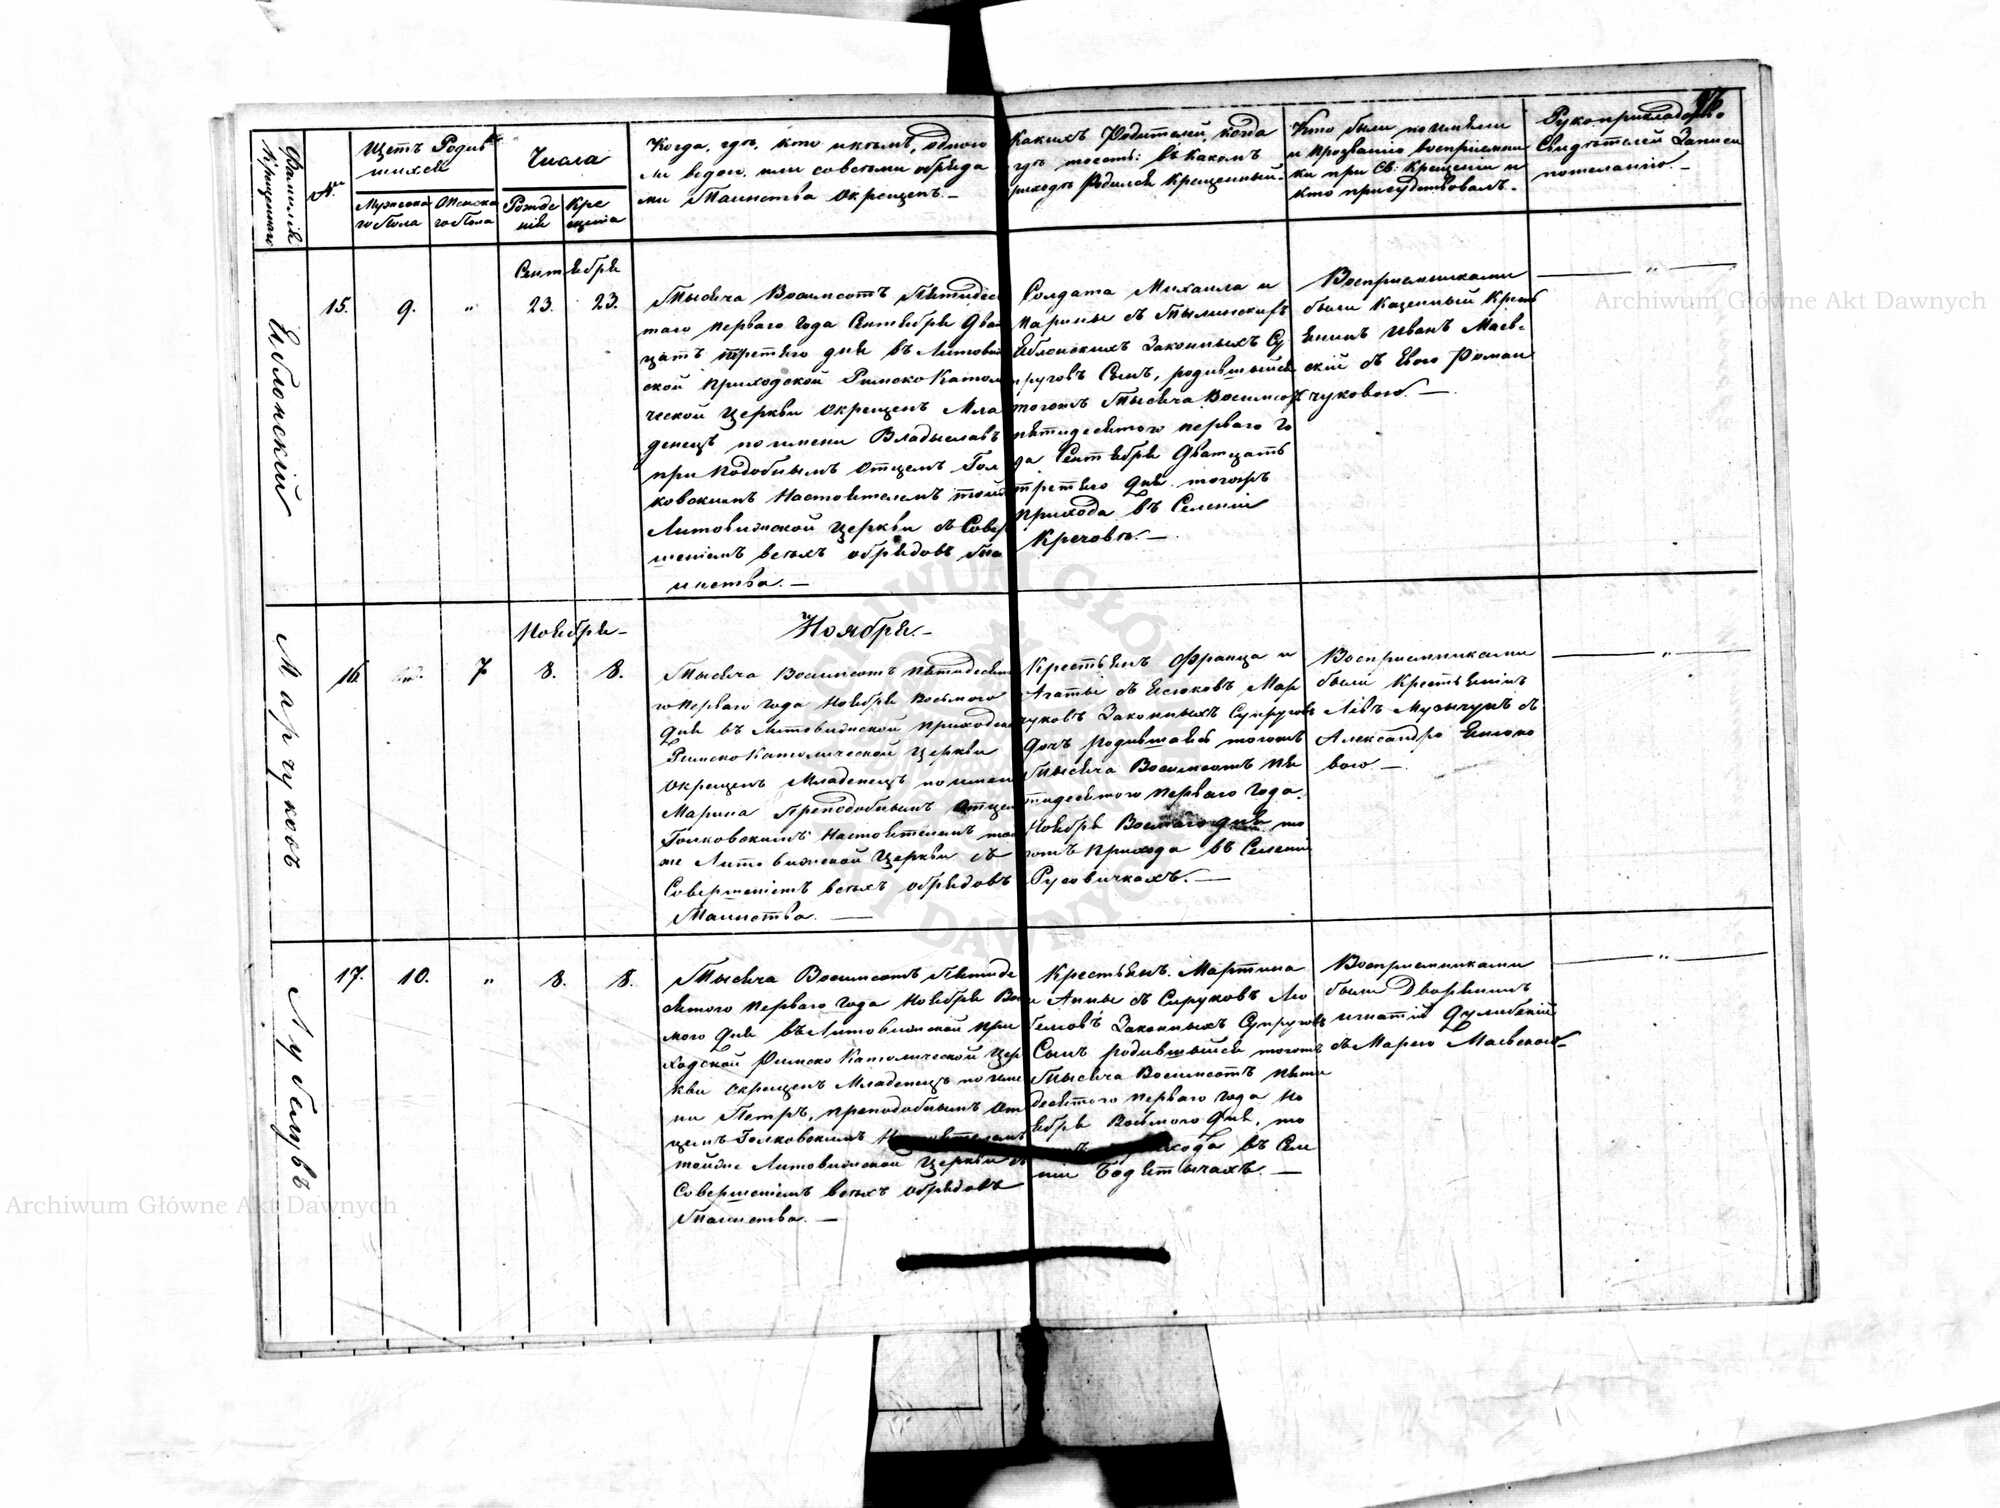 96
Фамилія Крещеннаго
№
Щетъ Родив
шихся
Мужска
го Пола
Женска
го Пола
Числа
Рожде
нія
Кре
щенія
Когда, гдѣ, кто и кѣмъ, одного
ли водою, или совсѣми обряда
ми Таинства Окрещенъ.—
Какихъ Родителей, когда
гдѣ тоесть: въ какомъ
приходѣ Родился Крещенный.
Кто были поимени
и Прозванію восприемни
ки при Св: Крещеніи и
кто присудствовалъ.—
Рукоприкладство
Свидѣтелей Записи
пожеланію.—
Яблонскій
15.
9.
"
Сентября
23.
23.
Тысяча Восимсотъ Пятидес
таго перваго Года Сентября Два
цать третяго дня въ Литовиж
ской Приходской Римско Катол
ческой Церкви Окрещенъ Мла
денецъ поимени Владыславъ
при Подобнымъ Отцемъ Гол
ковскимъ Настоятелемъ той
Литовижской Церкви съ Совер
шеніемъ всѣхъ обрядовъ Та
инства.—
Солдата Михаила и
Марины съ Тылинскихъ
Яблонскихъ Законныхъ Су
пруговъ Сынъ, родившыйся
тогожъ Тысяча Восимсот
пятидесятого перваго Го
да Сентября Дватцать
третяго Дня тогожъ
Прихода въ Селеніи
Кречовѣ.—
Восприемниками
были Казенный Крест
янинъ Иванъ Маев-
скій съ Евою Роман
чуковою.—
"
Марчуковъ
16.
7
Ноября—
8.
8.
Ноября.—
Тысяча Восимсотъ Пятидесят
го Перваго Года Ноября Восьмого
Дня въ Литовижской Приходско
Римско Католической Церкви
Окрещенъ Младенецъ поимен
Марина Преподобнымъ Отцем
Голковскимъ Настоятелемъ той
же Литовижской Церкви съ
Совершеніемъ всѣхъ обрядовъ
Таинства.—
Крестьянъ Франца и
Агаты съ Ясюковъ Мар
чуковъ Законныхъ Супруговъ
Дочь родившаяся тогожъ
Тысяча Восимсотъ Пя
тидесятого Перваго Года
Ноября Восмаго дня то
гожъ Прихода въ Селеніи
Русовичкахъ.—
Восприемниками
были Крестьянинъ
Лявъ Музычукъ съ
Александрою Ясюко
вою—
"
17.
10.
"
8.
8.
Тысяча Восимсотъ Пятиде
сятого Перваго Года Ноября Вос
мого Дня въ Литовижской При
ходской Римско Католической Цер
кви Окрещенъ Младенецъ поиме
ни Петръ, преподобнымъ От
цемъ Голковскимъ Настоятелемъ
тойже Литовижской Церкви съ
Совершеніемъ всѣхъ обрядовъ
Таинства.—
Крестьянъ Мартина
и Анны съ Сируковъ
Законныхъ Супруговъ
Сынъ родившыйся тогожъ
Тысяча Восимсотъ Пяти
десятого перваго года Но
ября Восьмого Дня, то
прихода въ Селе
ніи
Восприемниками
были Дворянинъ
Игнатій Дулибскій
съ Марею Маевскою
"
Archiwum Główne Akt Dawnych
Archiwum Główne Akt Dawnych